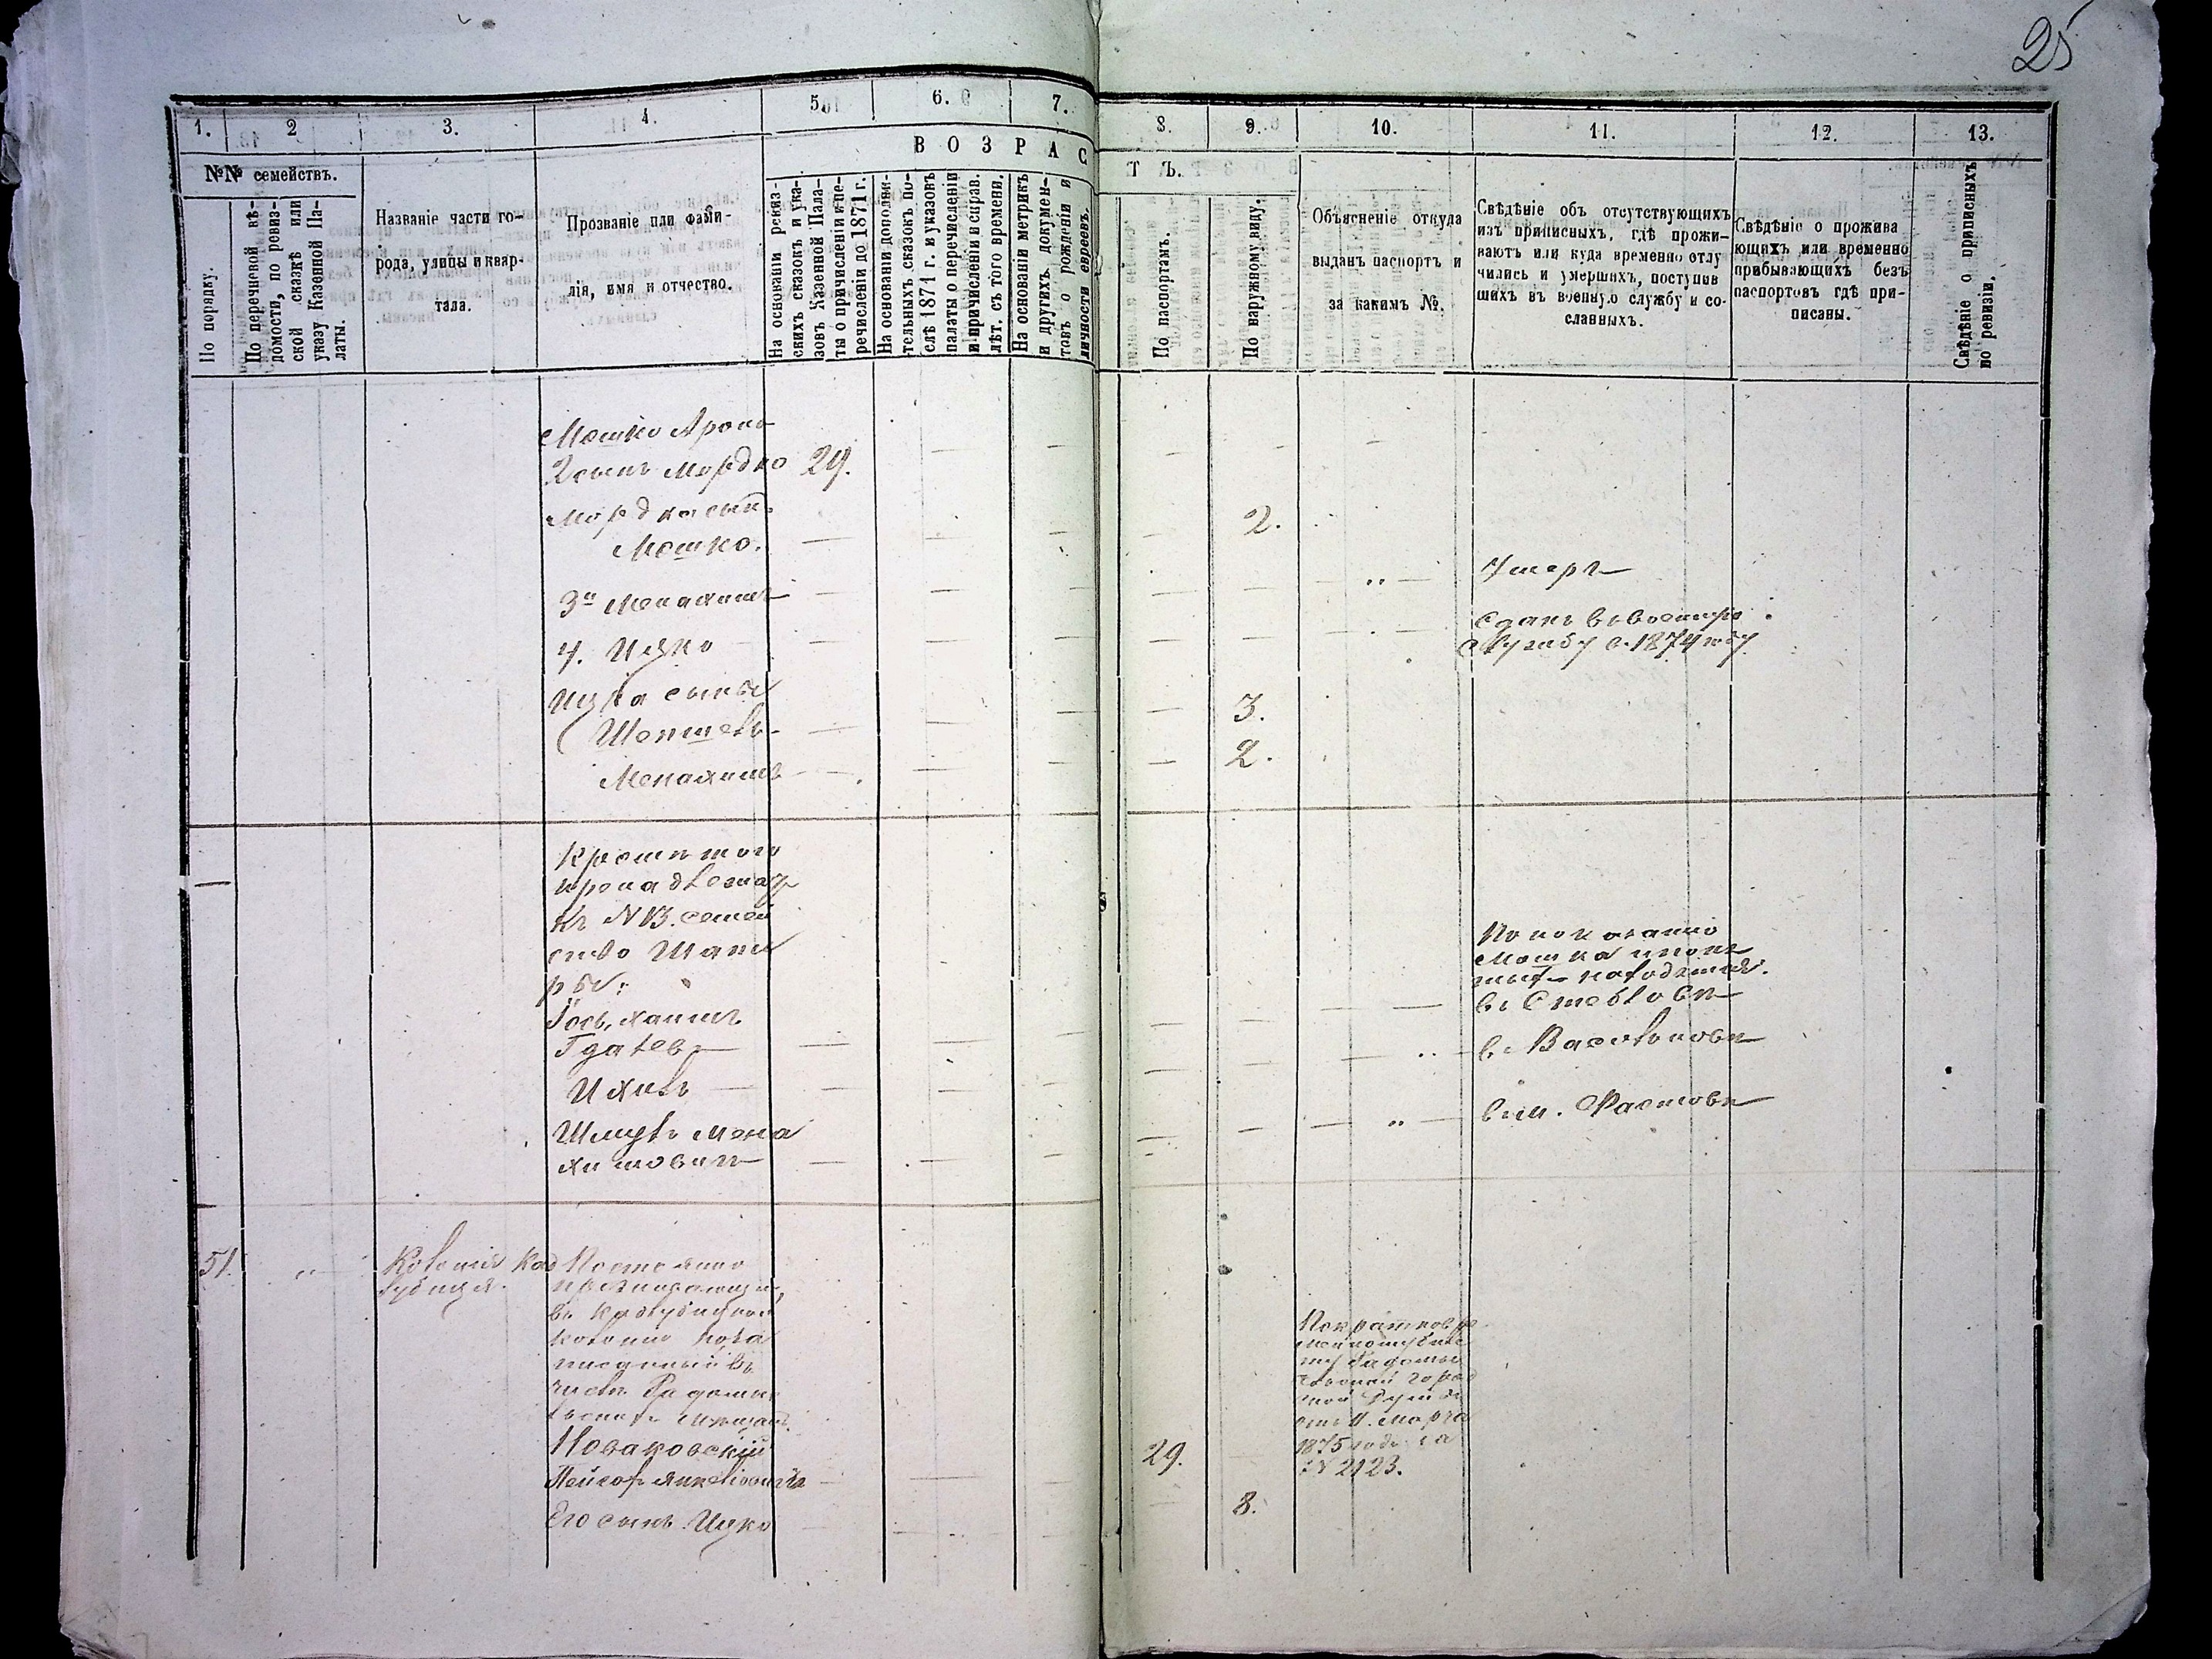 25
1. 2 3. 4. 5. 6. 7. 8. 9. 10. 11. 12. 13.
ВОЗРАСТЪ.
№№ семействъ.
По порядку.
По перечневой вѣ-
домости, по ревиз-
ской сказкѣ или
указу Казенной Па-
латы.
Названіе части го-
рода, улицы и квар-
тала.
Прозваніе или фами-
лія, имя и отчество.
На основаніи ревиз-
скихъ сказокъ и ука-
зовъ Казенной Пала-
ты о причисленіи и пе-
речисленіи до 1871 г.
На основаніи дополни-
тельныхъ сказокъ по-
слѣ 1871 г. и указовъ
палаты о перечисленіи
и причисленіи и справ.
лѣт. съ того времени.
На основаніи метрикъ
и другихъ докумен-
товъ о рожденіи и
личности евреевъ.
По паспортамъ.
По наружному виду.
Объясненіе откуда
выданъ паспортъ и
за какимъ №.
Свѣдѣніе объ отсутствующихъ
изъ приписныхъ, гдѣ прожи-
ваютъ или куда временно отлу
чились и умершихъ, поступив
шихъ въ военную службу и со-
сланныхъ.
Свѣдѣніе о прожива
ющихъ или временно
прибывающихъ безъ
паспортовъ гдѣ при-
писаны.
Свѣдѣніе о приписныхъ
по ревизіи.
Мошко Аронъ
2 сынъ Мордко 29.
Мордка сын.
Мошко. 2.
3й Менахимъ Умеръ
4. Ицко Сданъ въ военную
службу в 1874 году
Ицка сыны
Шепшель 3.
Менахимъ 2.
Кромѣ того
принадлежатъ
къ N 13. семей
ство Шапи
ры:
Іось, Хаимъ По показанію
Мошка
находится
въ Стеблевѣ
Гдалевъ в. Васильковѣ
Ихилъ в. м. Фастовѣ
Шмуль Мена
химовичъ
51. „ Колонія Кад
лубица.
Постоянно
проживающіе
въ Кадлубицкой
колоніи
писанный въ
числѣ Радомы
льскихъ мѣщанъ.
Новаковскій
Пейсах Янкеліовичъ 29.
городс
кой Думы
отъ 11. Марта
1875 года за
№ 2123.
Его сынъ Ицко 8.